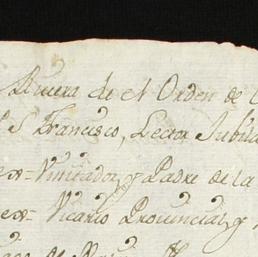 Rivera de el Orden de
S Francisco, Lector Jubila
ex=Visitador, y Padre de la
ex= Vicario Provincial, y